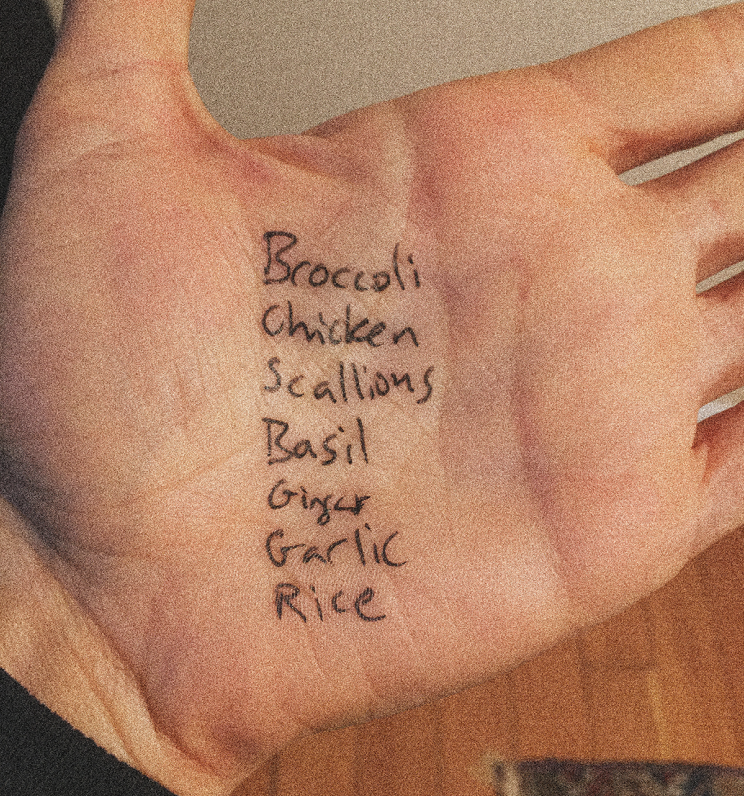 Broccoli
Chicken
Scallions
Basil
Ginger
Garlic
Rice